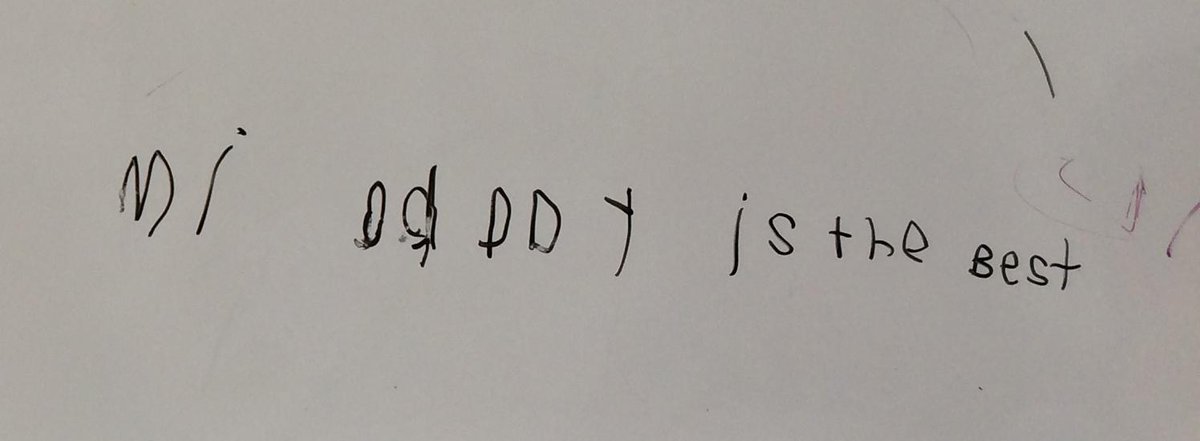 Mi DaDDY is the Best